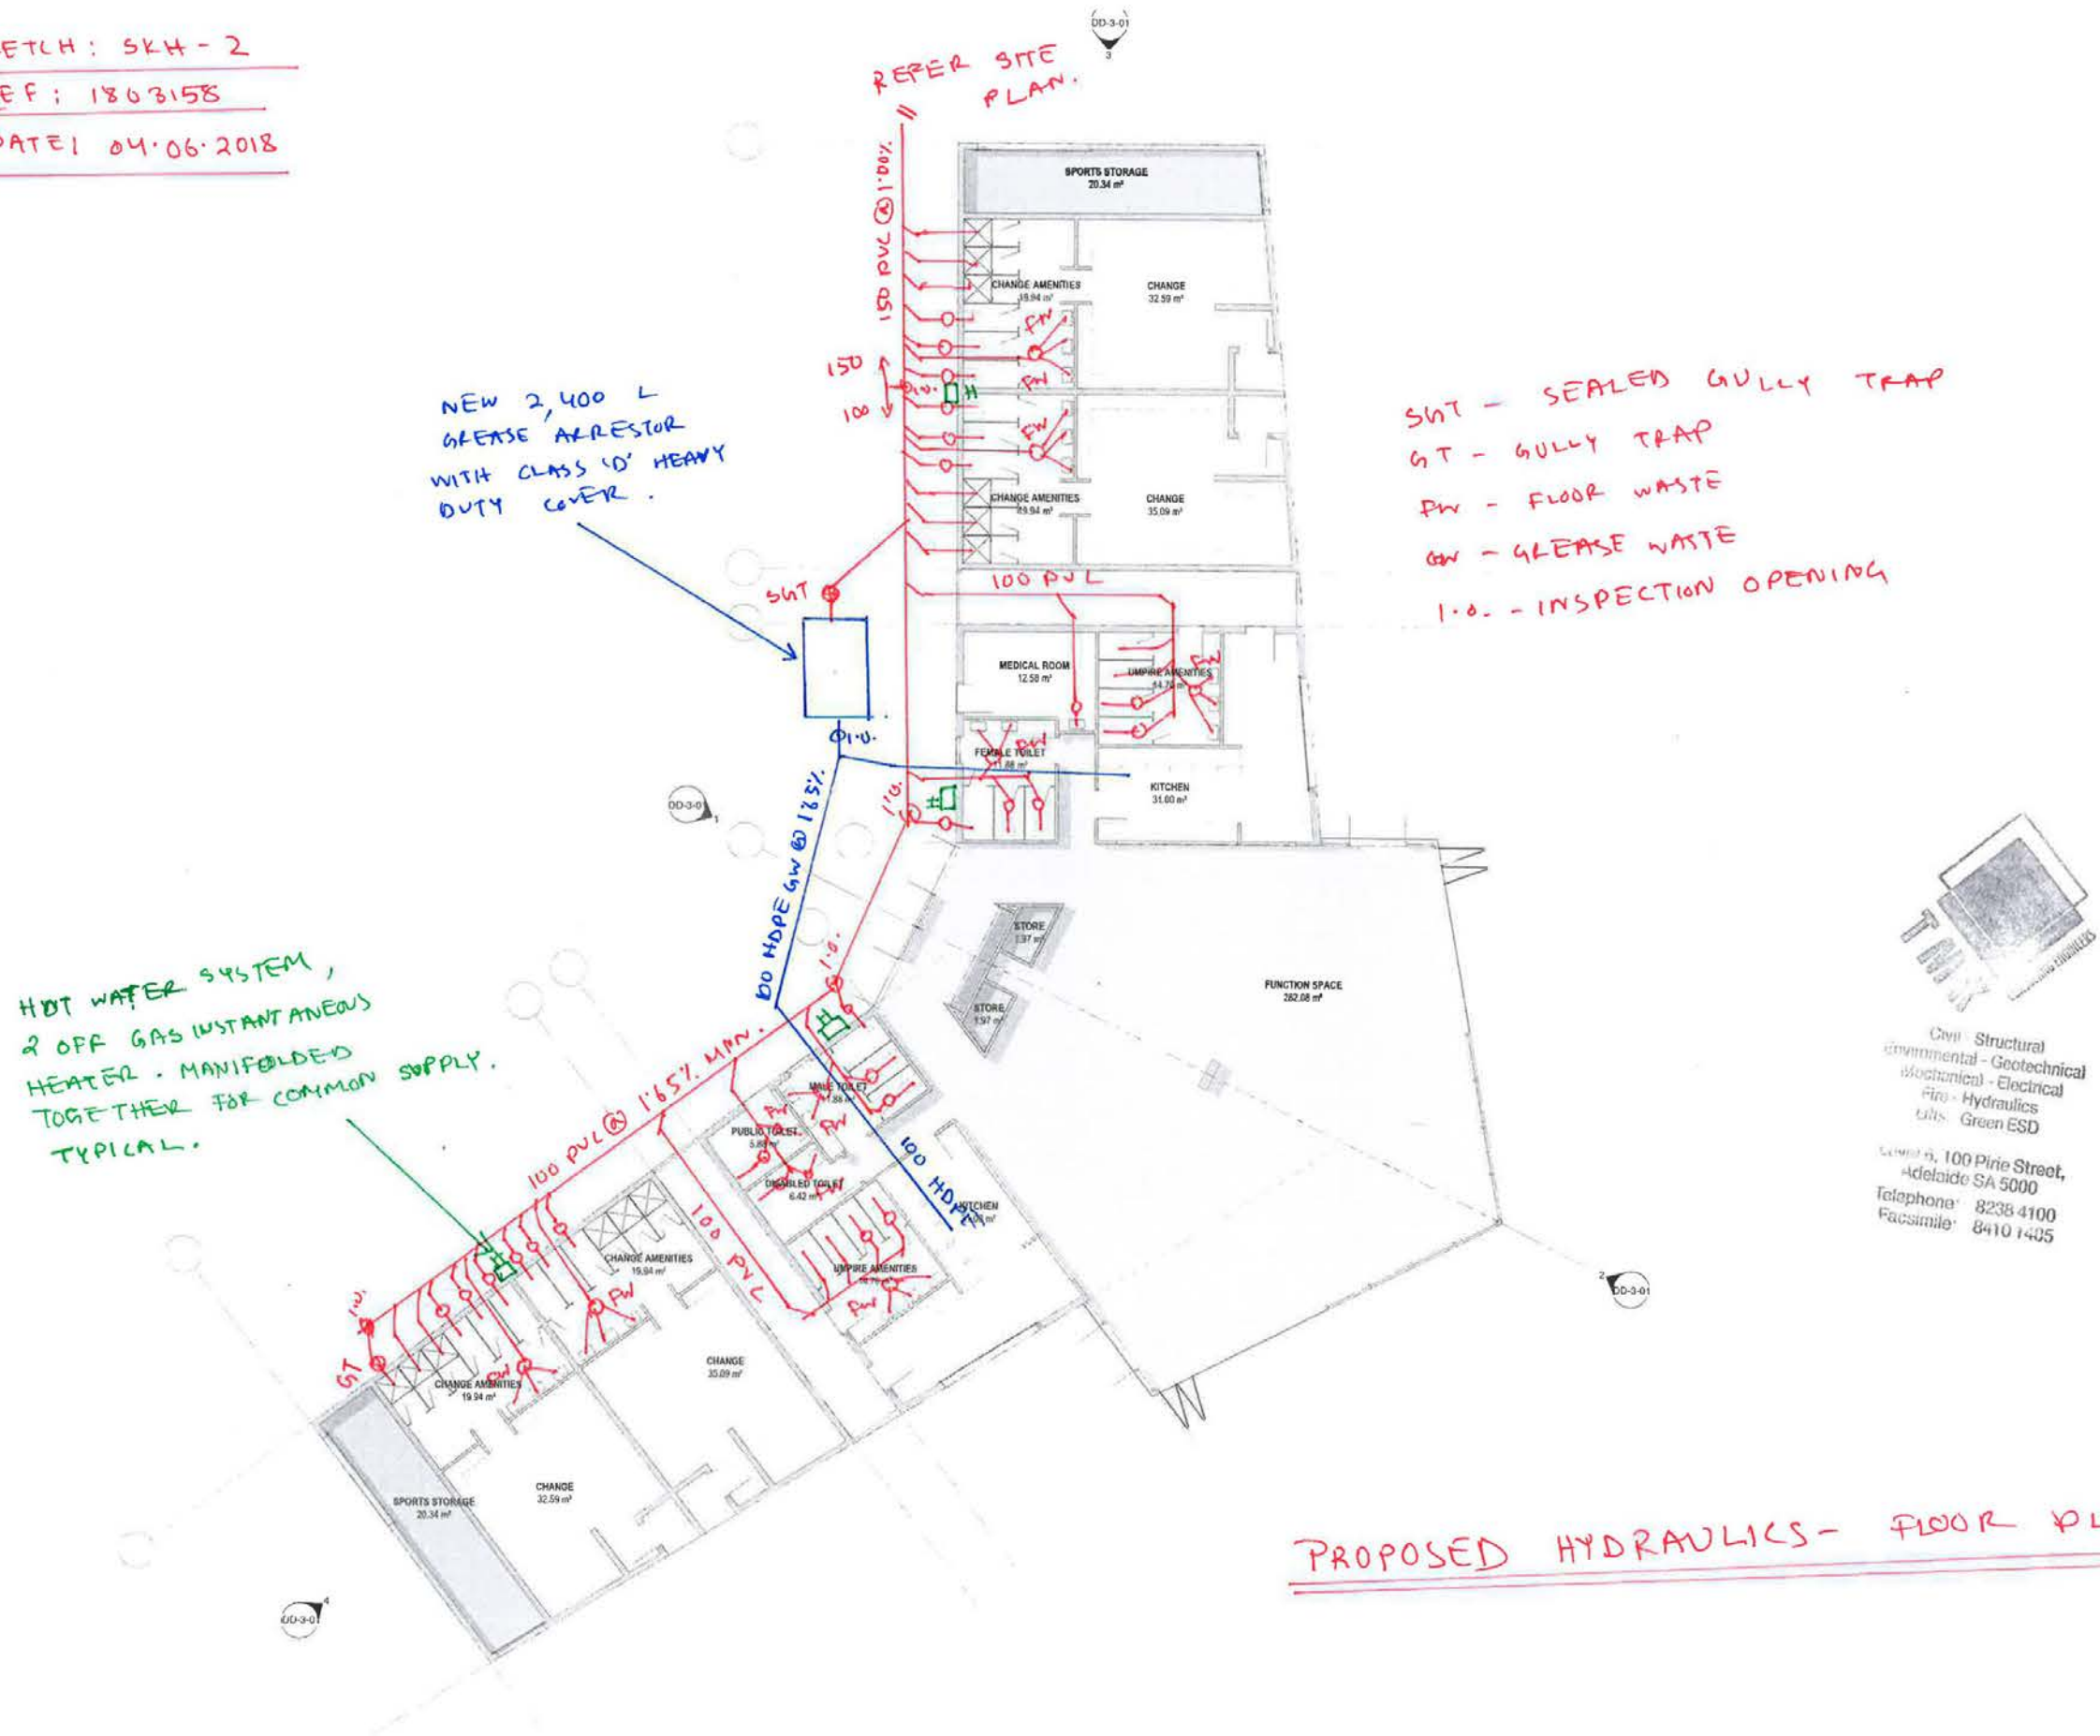 ETCH: SKH-2
EF: 1803158
DATE: 04.06.2018
DD-3-01
3
REFER SITE
PLAN.
150 PVC @ 1.00%
SPORTS STORAGE
20.34 m²
CHANGE AMENITIES
19.94 m²
CHANGE
32.59 m²
FW
FW
150
100
I.O.
H
FW
CHANGE AMENITIES
19.94 m²
CHANGE
35.09 m²
NEW 2,400 L
GREASE ARRESTOR
WITH CLASS 'D' HEAVY
DUTY COVER.
SGT - SEALED GULLY TRAP
GT - GULLY TRAP
FW - FLOOR WASTE
GW - GREASE WASTE
I.O. - INSPECTION OPENING
SGT
100 PVC
MEDICAL ROOM
12.58 m²
UMPIRE AMENITIES
14.79 m²
FW
I.O.
FEMALE TOILET
11.88 m²
FW
KITCHEN
31.60 m²
DD-3-01
1
I.O.
H
100 HDPE GW @ 1.65%
STORE
1.97 m²
STORE
1.97 m²
FUNCTION SPACE
262.08 m²
I.O.
H
HOT WATER SYSTEM,
2 OFF GAS INSTANTANEOUS
HEATER. MANIFOLDED
TOGETHER FOR COMMON SUPPLY.
TYPICAL.
100 PVC @ 1.65% MIN.
MALE TOILET
11.88 m²
FW
FW
PUBLIC TOILET
5.88 m²
DISABLED TOILET
6.42 m²
FW
100 HDPE
KITCHEN
UMPIRE AMENITIES
14.79 m²
FW
100 PVC
CHANGE AMENITIES
19.94 m²
FW
I.O.
GT
H
CHANGE AMENITIES
19.94 m²
FW
CHANGE
35.09 m²
CHANGE
32.59 m²
SPORTS STORAGE
20.34 m²
2
DD-3-01
4
DD-3-01
ENGINEERS
Civil - Structural
Environmental - Geotechnical
Mechanical - Electrical
Fire - Hydraulics
Lifts - Green ESD
Level 6, 100 Pirie Street,
Adelaide SA 5000
Telephone: 8238 4100
Facsimile: 8410 1405
PROPOSED HYDRAULICS - FLOOR PL